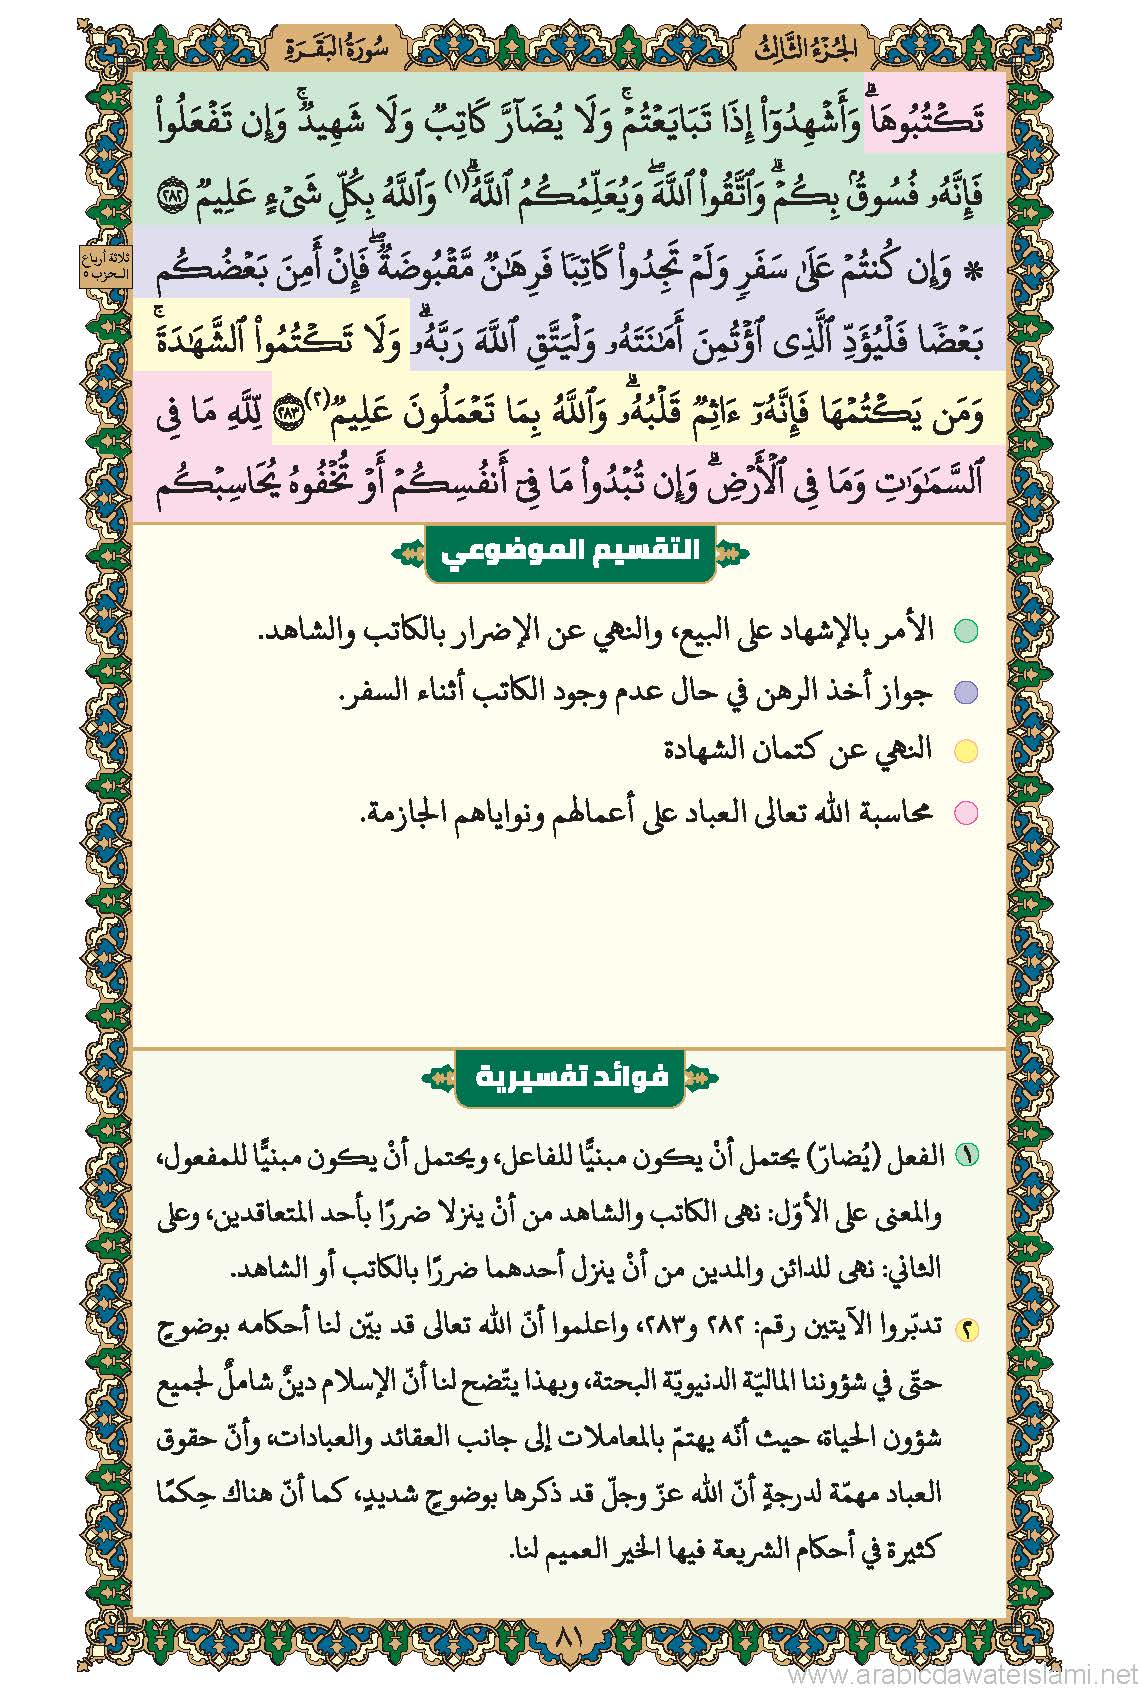 الجُزْءُ الثَّالِثُ
سُورَةُ البَقَرَةِ
تَكۡتُبُوهَاۗ وَأَشۡهِدُوٓاْ إِذَا تَبَايَعۡتُمۡۚ وَلَا يُضَآرَّ كَاتِبٞ وَلَا شَهِيدٞۚ وَإِن تَفۡعَلُواْ
فَإِنَّهُۥ فُسُوقُۢ بِكُمۡۗ وَٱتَّقُواْ ٱللَّهَۖ وَيُعَلِّمُكُمُ ٱللَّهُۗ (١) وَٱللَّهُ بِكُلِّ شَيۡءٍ عَلِيمٞ ٢٨٢
۞ وَإِن كُنتُمۡ عَلَىٰ سَفَرٖ وَلَمۡ تَجِدُواْ كَاتِبٗا فَرِهَٰنٞ مَّقۡبُوضَةٞۖ فَإِنۡ أَمِنَ بَعۡضُكُم
ثلاثة أرباع
الحزب ٥
بَعۡضٗا فَلۡيُؤَدِّ ٱلَّذِي ٱؤۡتُمِنَ أَمَٰنَتَهُۥ وَلۡيَتَّقِ ٱللَّهَ رَبَّهُۥۗ وَلَا تَكۡتُمُواْ ٱلشَّهَٰدَةَۚ
وَمَن يَكۡتُمۡهَا فَإِنَّهُۥٓ ءَاثِمٞ قَلۡبُهُۥۗ وَٱللَّهُ بِمَا تَعۡمَلُونَ عَلِيمٞ (٢) ٢٨٣ لِّلَّهِ مَا فِي
ٱلسَّمَٰوَٰتِ وَمَا فِي ٱلۡأَرۡضِۗ وَإِن تُبۡدُواْ مَا فِيٓ أَنفُسِكُمۡ أَوۡ تُخۡفُوهُ يُحَاسِبۡكُم
التقسيم الموضوعي
الأمر بالإشهاد على البيع، والنهي عن الإضرار بالكاتب والشاهد.
جواز أخذ الرهن في حال عدم وجود الكاتب أثناء السفر.
النهي عن كتمان الشهادة
محاسبة الله تعالى العباد على أعمالهم ونواياهم الجازمة.
فوائد تفسيرية
١ الفعل (يُضارّ) يحتمل أنْ يكون مبنيًّا للفاعل، ويحتمل أنْ يكون مبنيًّا للمفعول،
والمعنى على الأوّل: نهى الكاتب والشاهد من أنْ ينزلا ضررًا بأحد المتعاقدين، وعلى
الثاني: نهى للدائن والمدين من أنْ ينزل أحدهما ضررًا بالكاتب أو الشاهد.
٢ تدبّروا الآيتين رقم: ٢٨٢ و٢٨٣، واعلموا أنّ الله تعالى قد بيّن لنا أحكامه بوضوحٍ
حتّى في شؤوننا الماليّة الدنيويّة البحتة، وبهذا يتّضح لنا أنّ الإسلام دينٌ شاملٌ لجميع
شؤون الحياة، حيث أنّه يهتمّ بالمعاملات إلى جانب العقائد والعبادات، وأنّ حقوق
العباد مهمّة لدرجةٍ أنّ الله عزّ وجلّ قد ذكرها بوضوحٍ شديدٍ، كما أنّ هناك حِكمًا
كثيرة في أحكام الشريعة فيها الخير العميم لنا.
٨١
www.arabicdawateislami.net